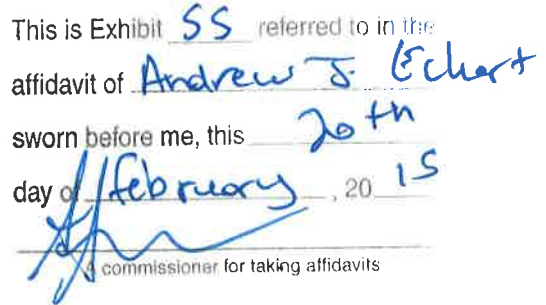 This is Exhibit SS referred to in the
affidavit of Andrew J. Eckart
sworn before me, this 20th
day of february, 2015
A commissioner for taking affidavits